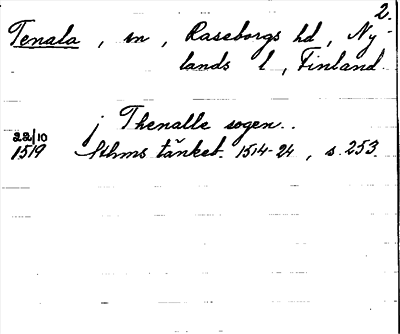 2.
Tenala, sn, Raseborgs hd, Ny-
lands l, Finland.
j Thenalle sogen..
22/10
1519 Sthms tänkeb. 1514-24, s. 253.